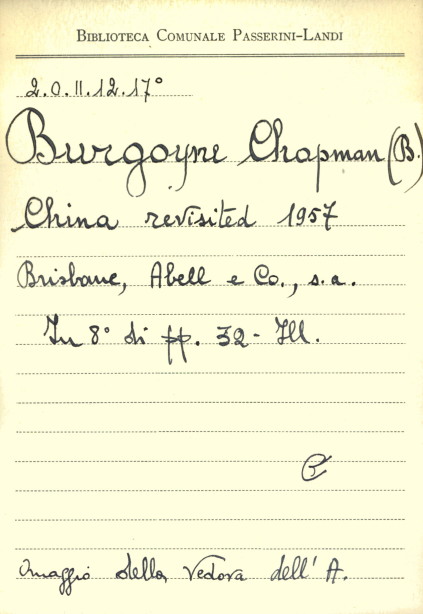 BIBLIOTECA COMUNALE PASSERINI-LANDI
2.0.II.12.17°
Burgoyne Chapman (B.)
China revisited 1957
Brisbane, Abell e Co., s.a.
In 8° di pp. 32 - Ill.
Omaggio della Vedova dell' A.